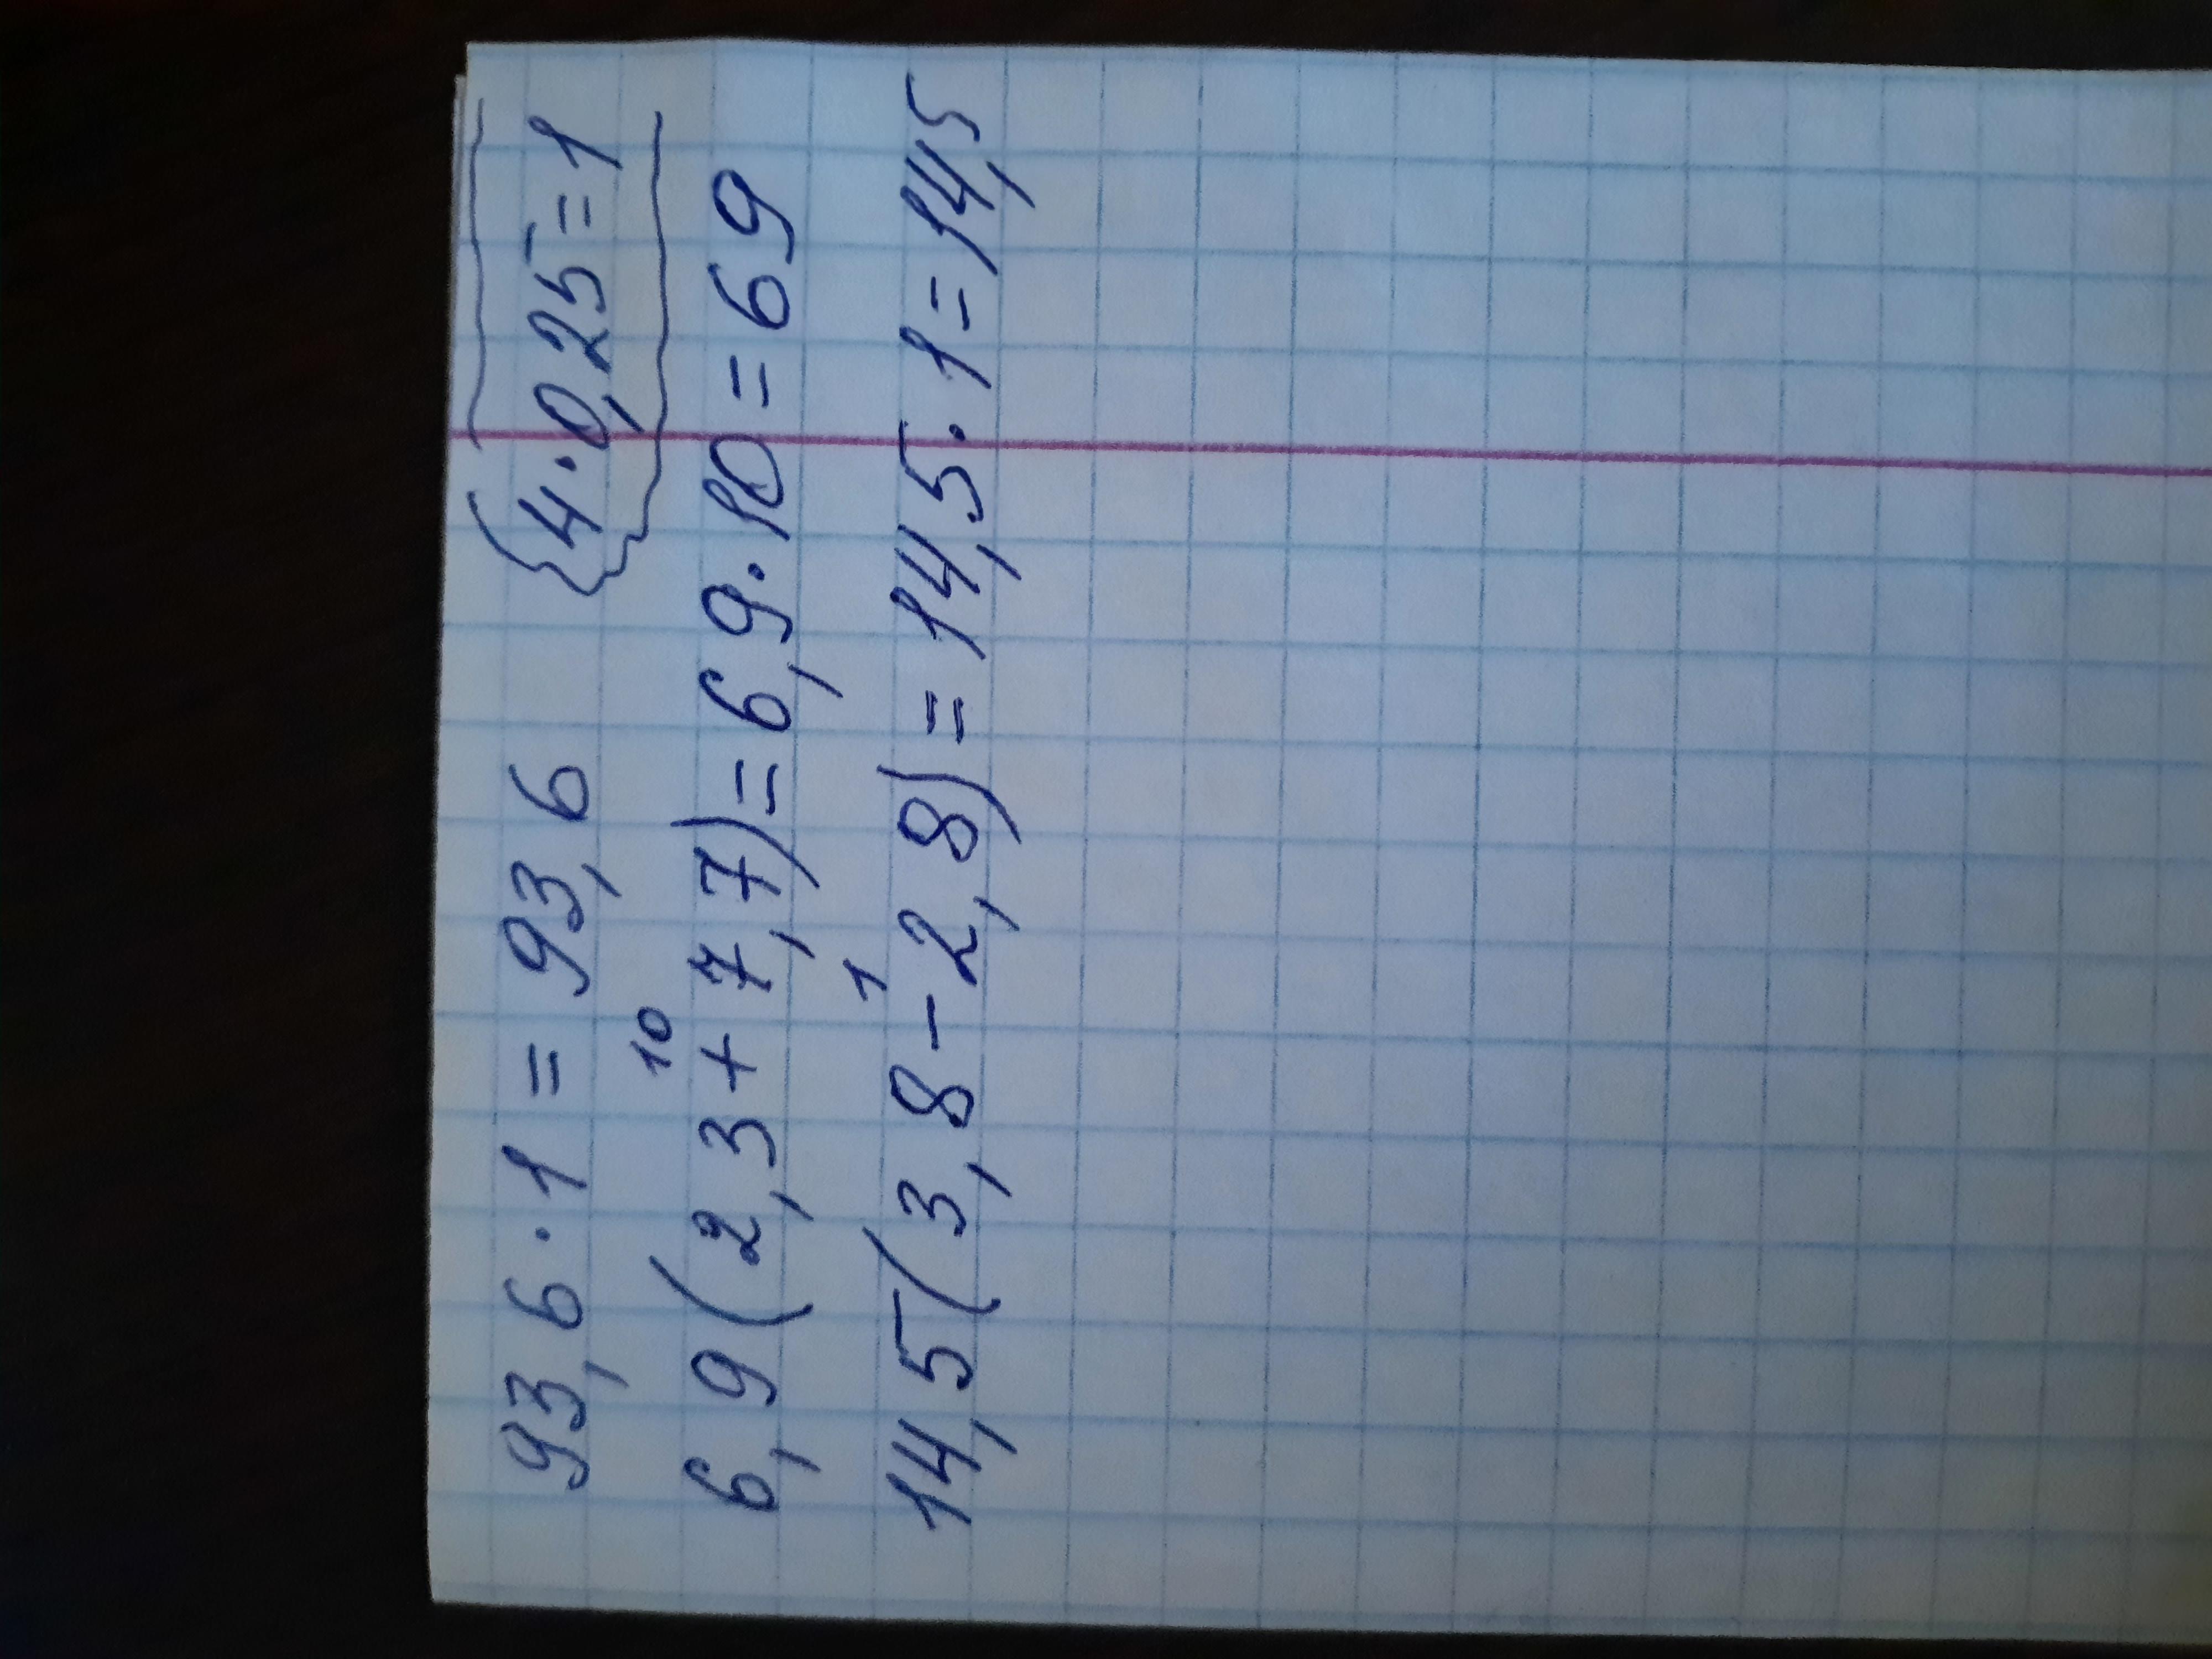 93,6 · 1 = 93,6 {4 · 0,25 = 1
10
6,9(2,3 + 7,7) = 6,9 · 10 = 69
1
14,5(3,8 - 2,8) = 14,5 · 1 = 14,5